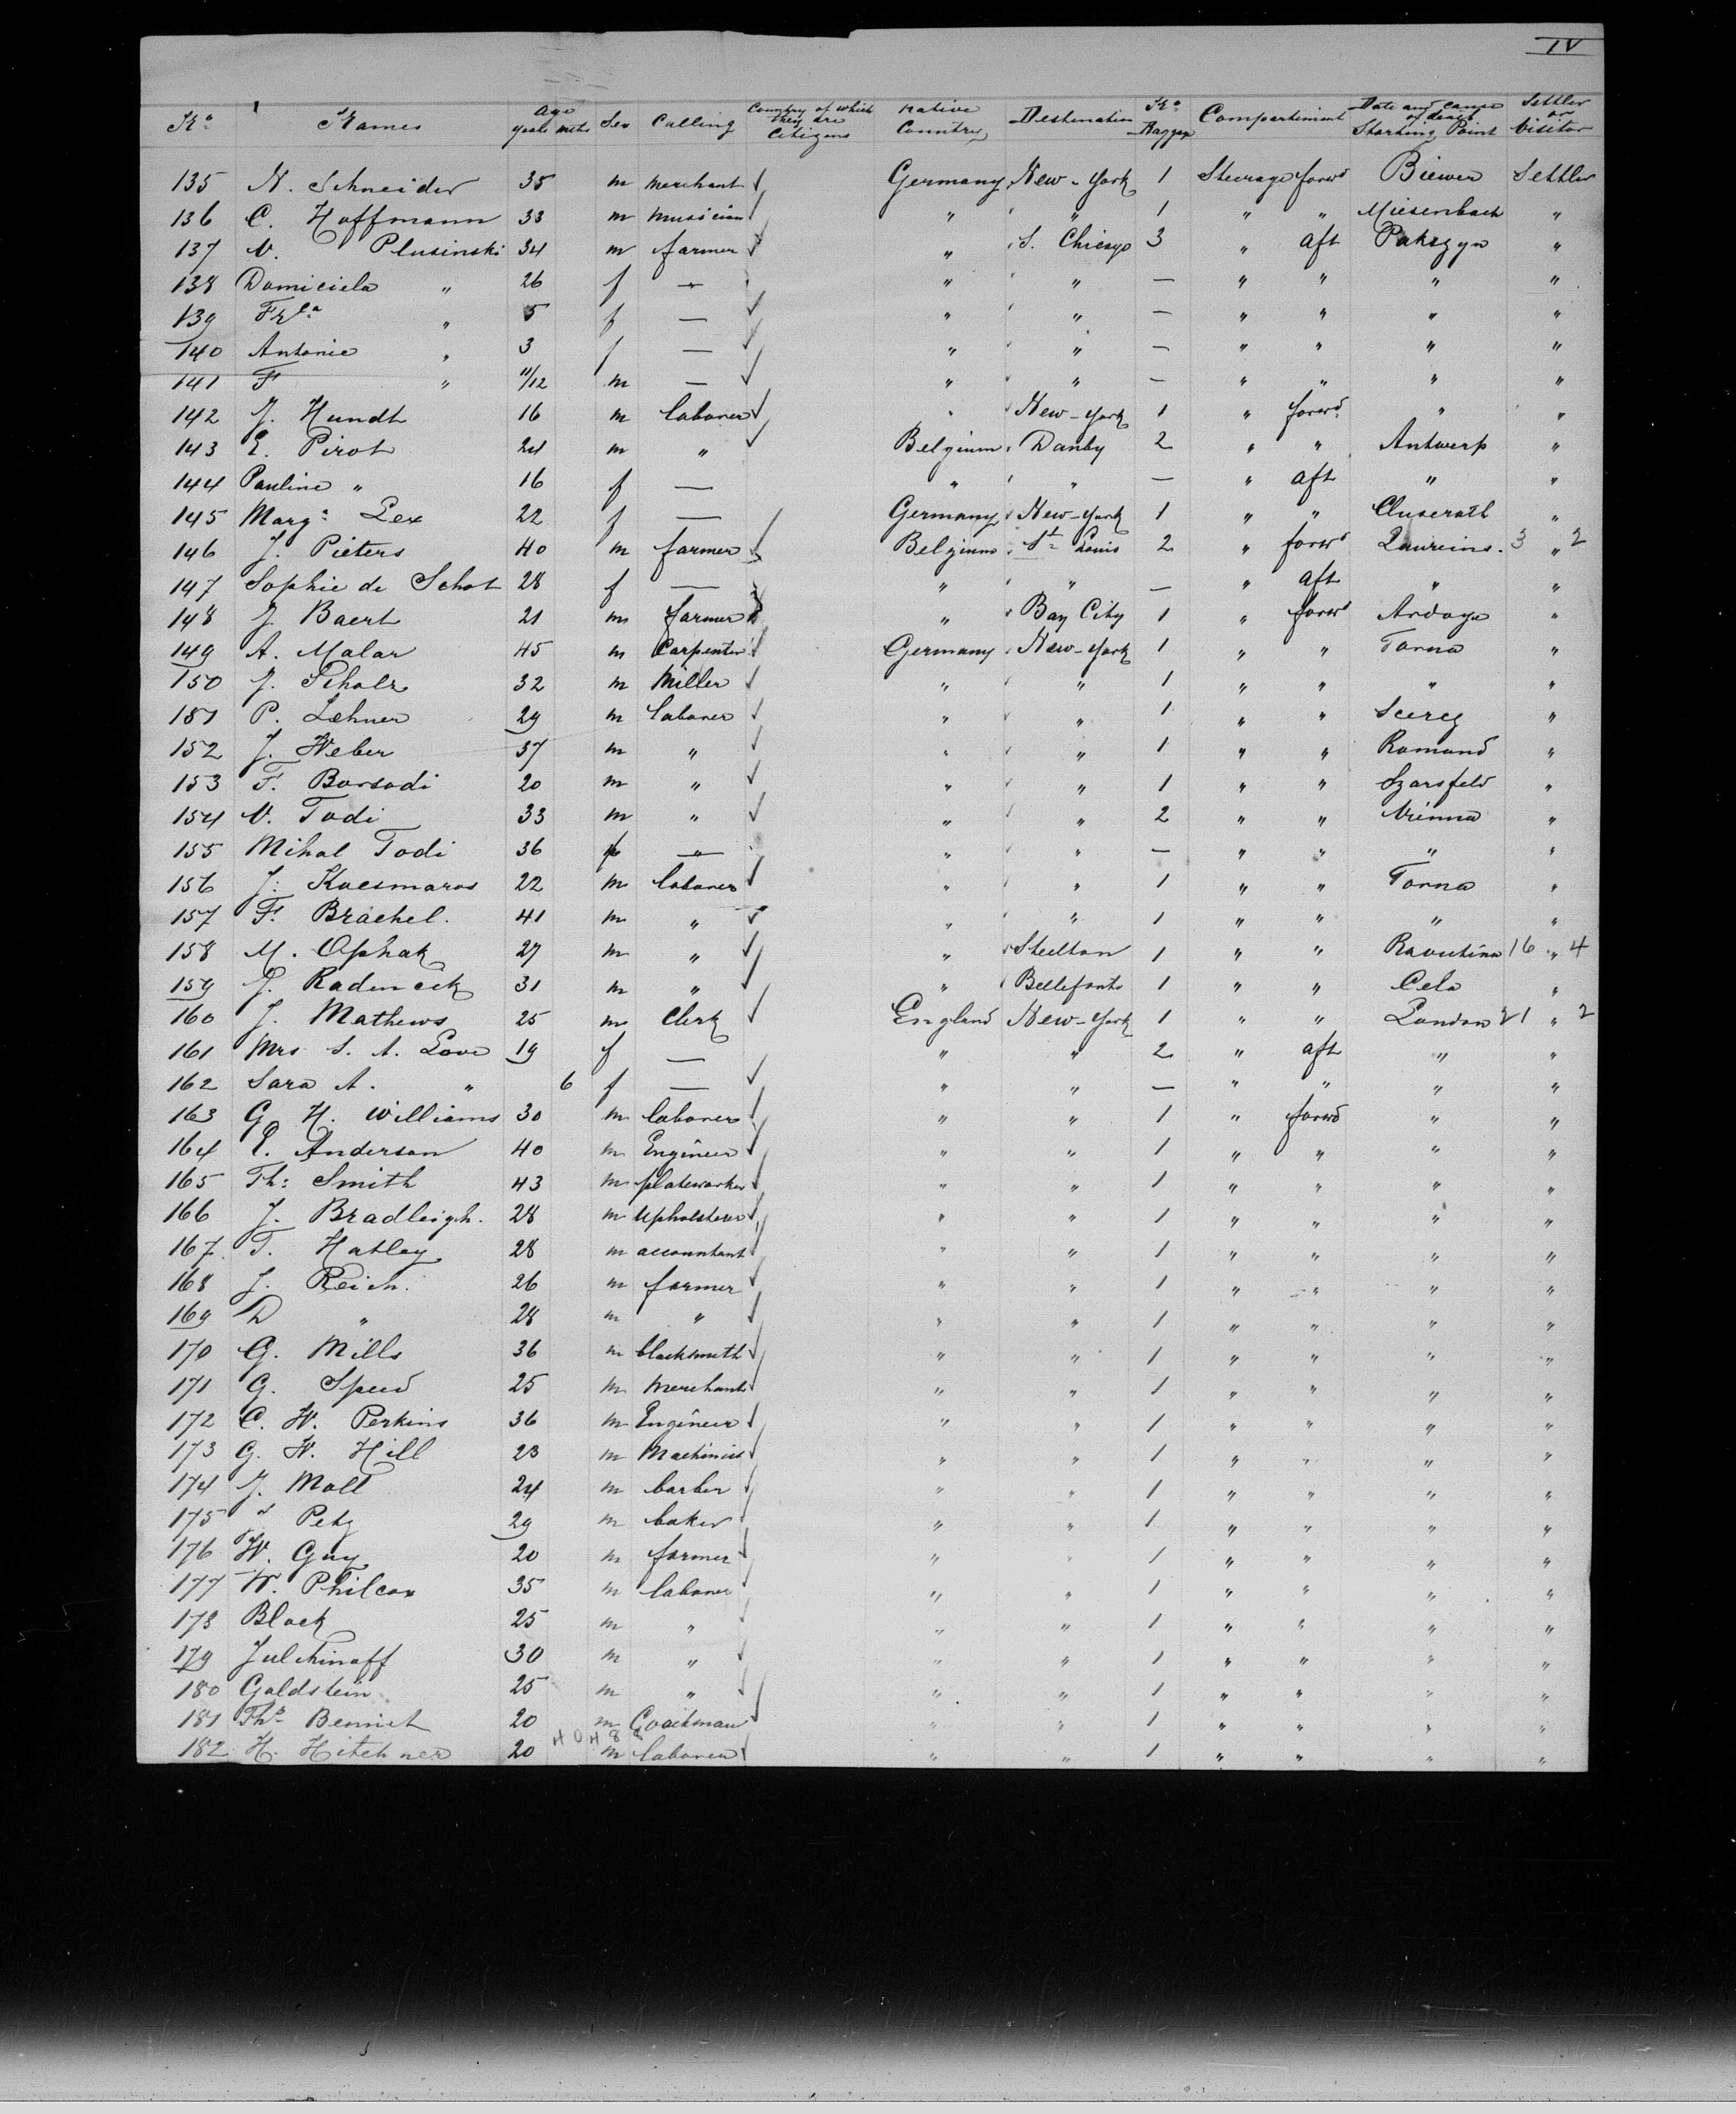 IV
No Names Age years mths Sex Calling Country of which they are Citizens Native Country Destination No Baggage Compartiment Date and cause of death Starting Point Settler or Visitor
135 N. Schneider 35 m merchant Germany New-York 1 Steerage forwd Biewer Settler
136 C. Hoffmann 33 m musician " " 1 " " Miesenbach "
137 V. Plusinski 34 m farmer " S. Chicago 3 " aft Pakszyn "
138 Domiciela " 26 f — " " — " " " "
139 Frla " 5 f — " " — " " " "
140 Antonie " 3 f — " " — " " " "
141 F " 11/12 m — " " — " " " "
142 J. Hundt 16 m laborer " New-York 1 " forwd " "
143 E. Pirot 24 m " Belgium Danby 2 " " Antwerp "
144 Pauline " 16 f — " " — " aft " "
145 Marga Lex 22 f — Germany New-York 1 " " Cluserath "
146 J. Pieters 40 m farmer Belgium St Louis 2 " forwd Laureins. 3 " 2
147 Sophie de Schot 28 f — " " — " aft " "
148 J. Baert 21 m farmer " Bay City 1 " forwd Ardoye "
149 A. Malar 45 m Carpenter Germany New-York 1 " " Torna "
150 J. Scholz 32 m Miller " " 1 " " " "
151 P. Lehner 29 m laborer " " 1 " " "
152 J. Weber 37 m " " " 1 " " Romand "
153 F. Borsodi 20 m " " " 1 " " Szarsfeld "
154 V. Todi 33 m " " " 2 " " Vienna "
155 Mihal Todi 36 f — " " — " " " "
156 J. Kocsmaros 22 m laborer " " 1 " " Torna "
157 F. Brachel. 41 m " " " 1 " " " "
158 M. Ophak 27 m " " Steelton 1 " " 16 " 4
159 J. Radencik 31 m " " Bellefonte 1 " " Cela "
160 J. Mathews 25 m Clerk England New-York 1 " " London 21 " 2
161 Mrs S. A. Love 19 f — " " 2 " aft " "
162 Sara A. " 6 f — " " — " " " "
163 G. H. Williams 30 m laborer " " 1 " forwd " "
164 E. Anderson 40 m Engineer " " 1 " " " "
165 Th: Smith 43 m plateworker " " 1 " " " "
166 J. Bradleigh. 28 m Upholsterer " " 1 " " " "
167 T. Hatley 28 m accountant " " 1 " " " "
168 J. Reich. 26 m farmer " " 1 " " " "
169 D " 28 m " " " 1 " " " "
170 G. Mills 36 m blacksmith " " 1 " " " "
171 G. Speed 25 m Merchant " " 1 " " " "
172 C. W. Perkins 36 m Engineer " " 1 " " " "
173 G. W. Hill 23 m Machinist " " 1 " " " "
174 J. Moll 24 m barber " " 1 " " " "
175 " Petz 29 m baker " " 1 " " " "
176 W. Guy 20 m farmer " " 1 " " " "
177 W. Philcox 35 m laborer " " 1 " " " "
178 Block 25 m " " " 1 " " " "
179 Julchinoff 30 m " " " 1 " " " "
180 Goldstein 25 m " " " 1 " " " "
181 Ths Bennet 20 m Coachman " " 1 " " " "
182 H. Hitchner 20 m laborer " " 1 " " " "